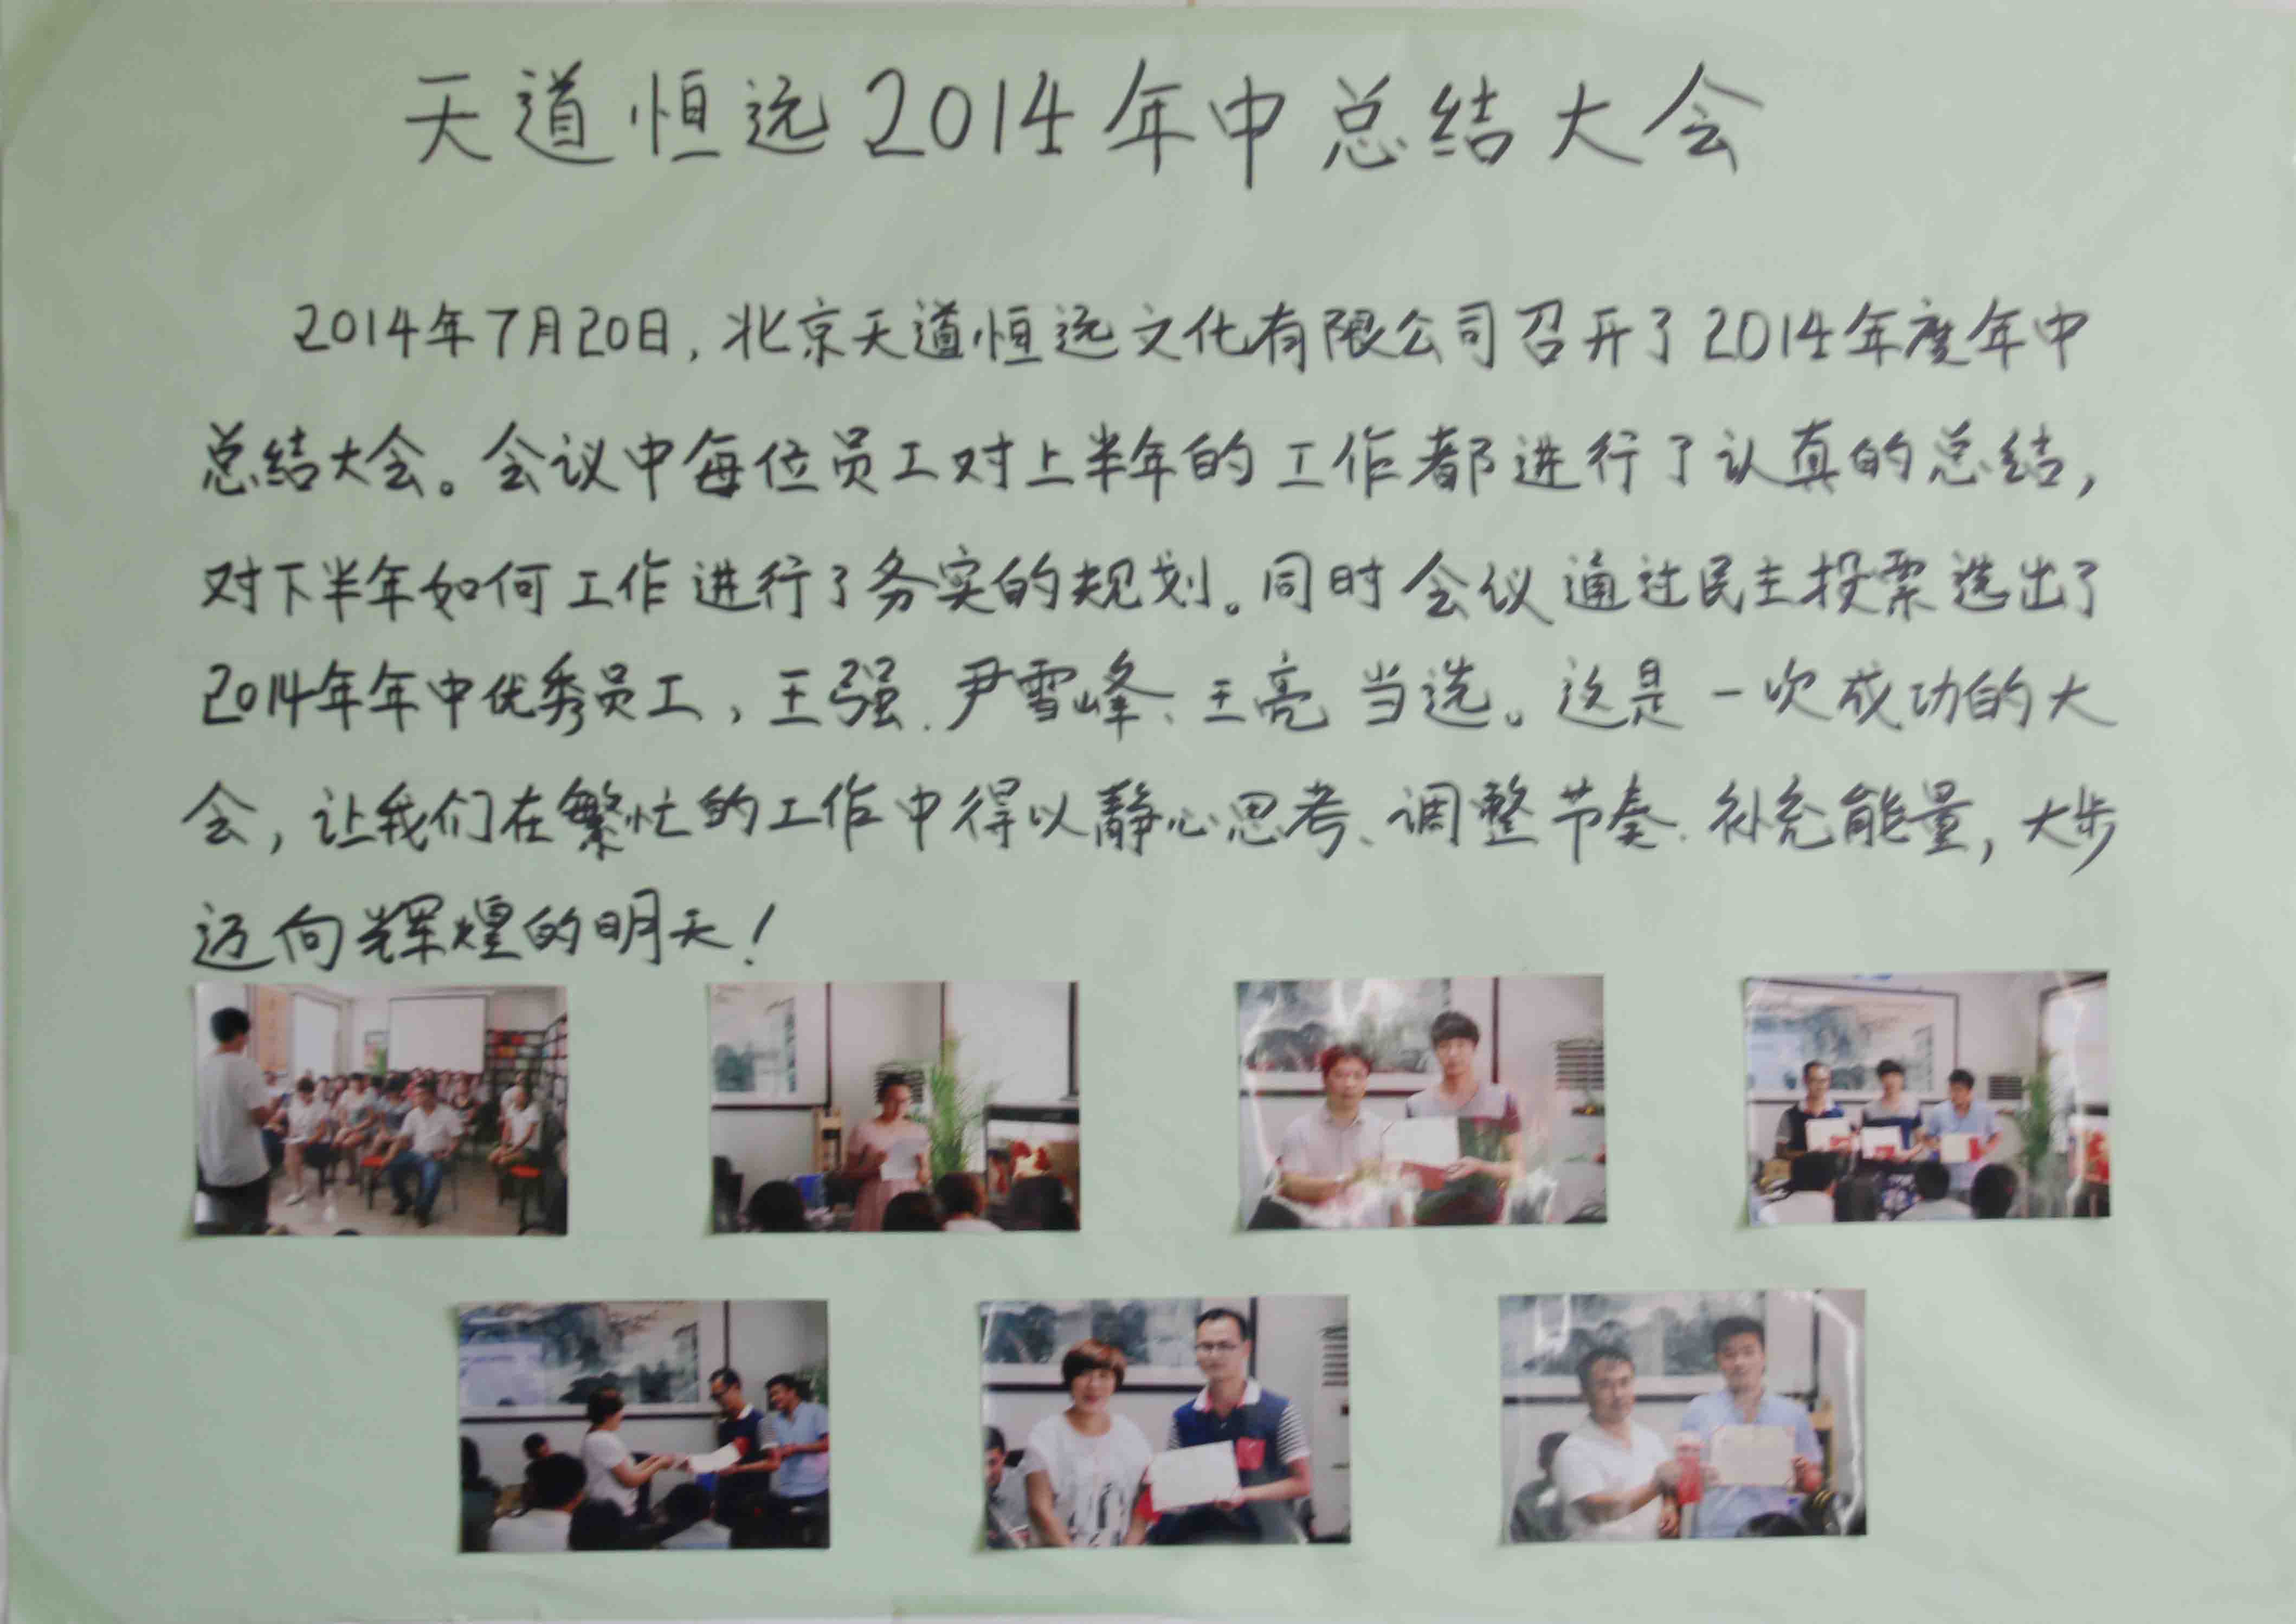 天道恒远2014年中总结大会
2014年7月20日,北京天道恒远文化有限公司召开了2014年度年中
总结大会。会议中每位员工对上半年的工作都进行了认真的总结,
对下半年如何工作进行了务实的规划。同时会议通过民主投票选出了
2014年年中优秀员工,王强、尹雪峰、王亮当选。这是一次成功的大
会,让我们在繁忙的工作中得以静心思考、调整节奏、补充能量,大步
迈向辉煌的明天!